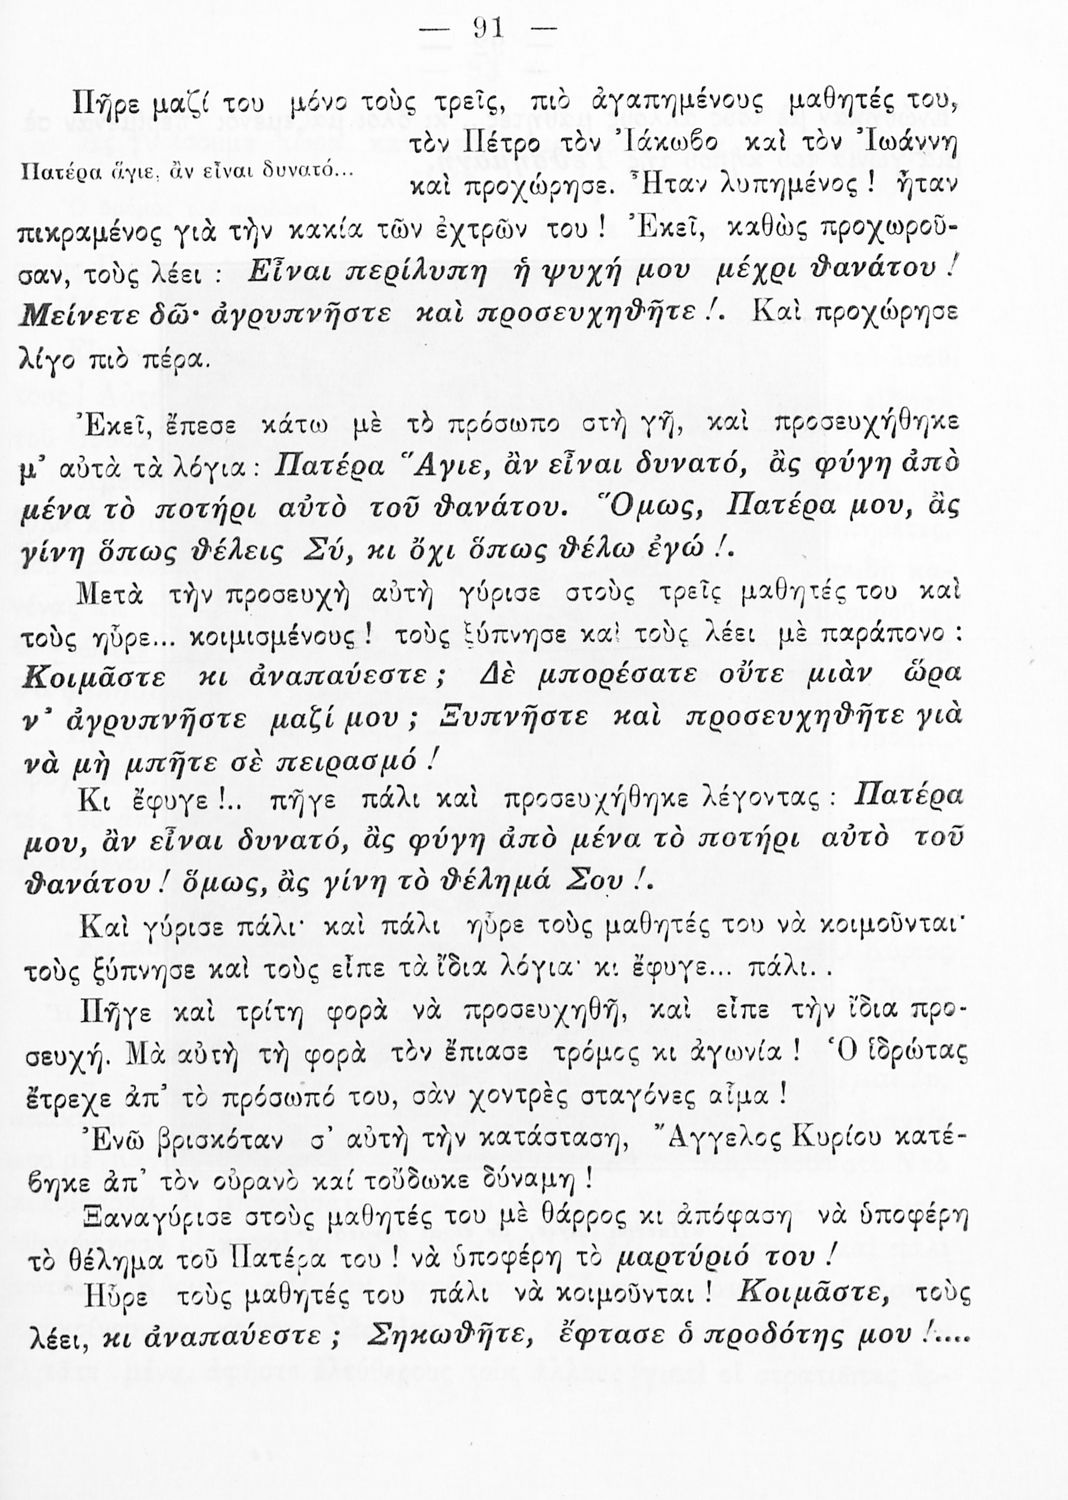 — 91 —
Πῆρε μαζί του μόνο τοὺς τρεῖς, πιὸ ἀγαπημένους μαθητές του,
τὸν Πέτρο τὸν Ἰάκωβο καὶ τὸν Ἰωάννη
Πατέρα ἅγιε, ἂν εἶναι δυνατό...
καὶ προχώρησε. Ἦταν λυπημένος ! ἦταν
πικραμένος γιὰ τὴν κακία τῶν ἐχτρῶν του ! Ἐκεῖ, καθὼς προχωροῦ-
σαν, τοὺς λέει : Εἶναι περίλυπη ἡ ψυχή μου μέχρι θανάτου !
Μείνετε δῶ· ἀγρυπνῆστε καὶ προσευχηθῆτε !. Καὶ προχώρησε
λίγο πιὸ πέρα.
Ἐκεῖ, ἔπεσε κάτω μὲ τὸ πρόσωπο στὴ γῆ, καὶ προσευχήθηκε
μ᾿ αὐτὰ τὰ λόγια : Πατέρα Ἅγιε, ἂν εἶναι δυνατό, ἂς φύγη ἀπὸ
μένα τὸ ποτήρι αὐτὸ τοῦ θανάτου. Ὅμως, Πατέρα μου, ἂς
γίνη ὅπως θέλεις Σύ, κι ὄχι ὅπως θέλω ἐγώ !.
Μετὰ τὴν προσευχὴ αὐτὴ γύρισε στοὺς τρεῖς μαθητές του καὶ
τοὺς ηὗρε... κοιμισμένους ! τοὺς ξύπνησε καὶ τοὺς λέει μὲ παράπονο :
Κοιμᾶστε κι ἀναπαύεστε ; Δὲ μπορέσατε οὔτε μιὰν ὥρα
ν᾿ ἀγρυπνῆστε μαζί μου ; Ξυπνῆστε καὶ προσευχηθῆτε γιὰ
νὰ μὴ μπῆτε σὲ πειρασμό !
Κι ἔφυγε !.. πῆγε πάλι καὶ προσευχήθηκε λέγοντας : Πατέρα
μου, ἂν εἶναι δυνατό, ἂς φύγη ἀπὸ μένα τὸ ποτήρι αὐτὸ τοῦ
θανάτου ! ὅμως, ἂς γίνη τὸ θέλημά Σου !.
Καὶ γύρισε πάλι· καὶ πάλι ηὗρε τοὺς μαθητές του νὰ κοιμοῦνται·
τοὺς ξύπνησε καὶ τοὺς εἶπε τὰ ἴδια λόγια· κι ἔφυγε... πάλι. .
Πῆγε καὶ τρίτη φορὰ νὰ προσευχηθῆ, καὶ εἶπε τὴν ἴδια προ-
σευχή. Μὰ αὐτὴ τὴ φορὰ τὸν ἔπιασε τρόμος κι ἀγωνία ! Ὁ ἱδρώτας
ἔτρεχε ἀπ᾿ τὸ πρόσωπό του, σὰν χοντρὲς σταγόνες αἷμα !
Ἐνῶ βρισκόταν σ᾿ αὐτὴ τὴν κατάσταση, Ἄγγελος Κυρίου κατέ-
βηκε ἀπ᾿ τὸν οὐρανὸ καί τοὔδωκε δύναμη !
Ξαναγύρισε στοὺς μαθητές του μὲ θάρρος κι ἀπόφαση νὰ ὑποφέρη
τὸ θέλημα τοῦ Πατέρα του ! νὰ ὑποφέρη τὸ μαρτύριό του !
Ηὗρε τοὺς μαθητές του πάλι νὰ κοιμοῦνται ! Κοιμᾶστε, τοὺς
λέει, κι ἀναπαύεστε ; Σηκωθῆτε, ἔφτασε ὁ προδότης μου !....